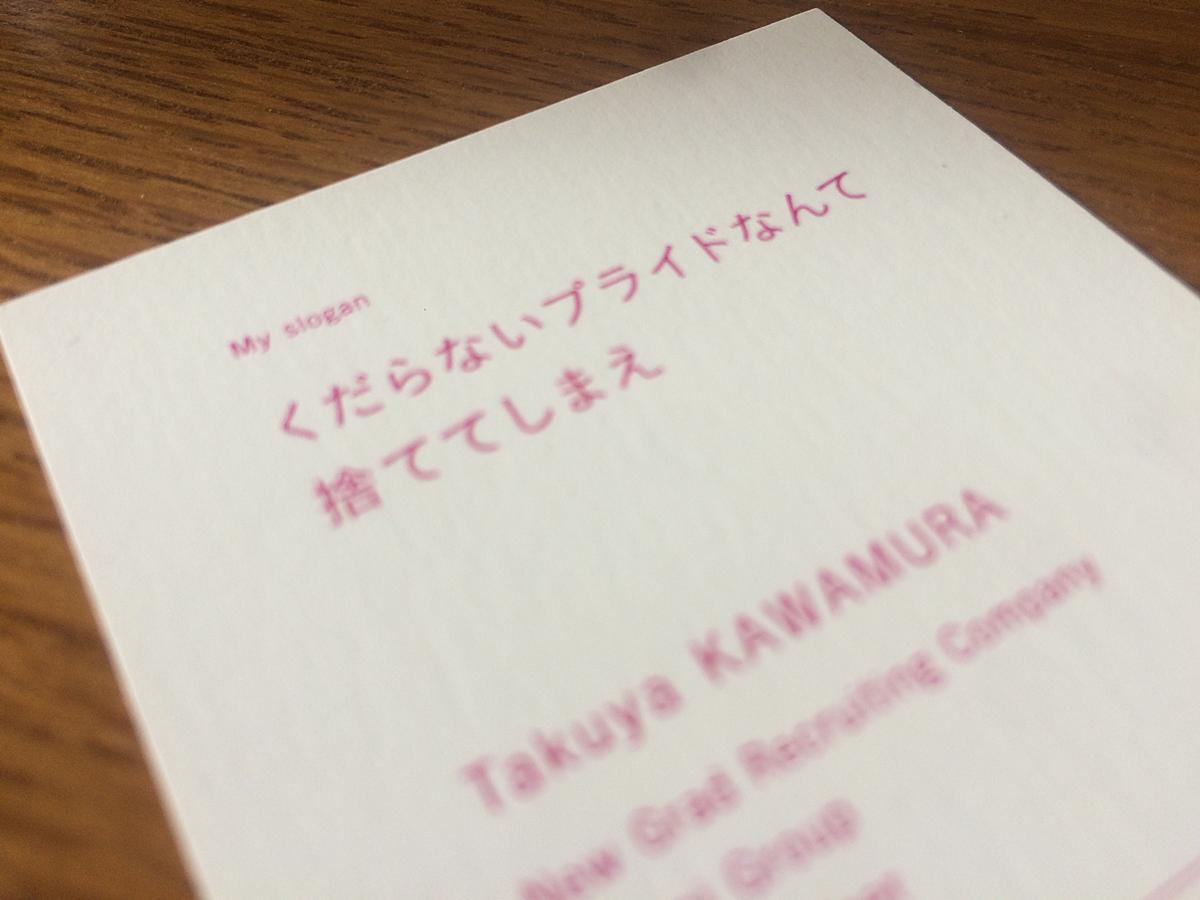 My slogan
くだらないプライドなんて
捨ててしまえ
Takuya KAWAMURA
New Grad Recruiting Company
Group